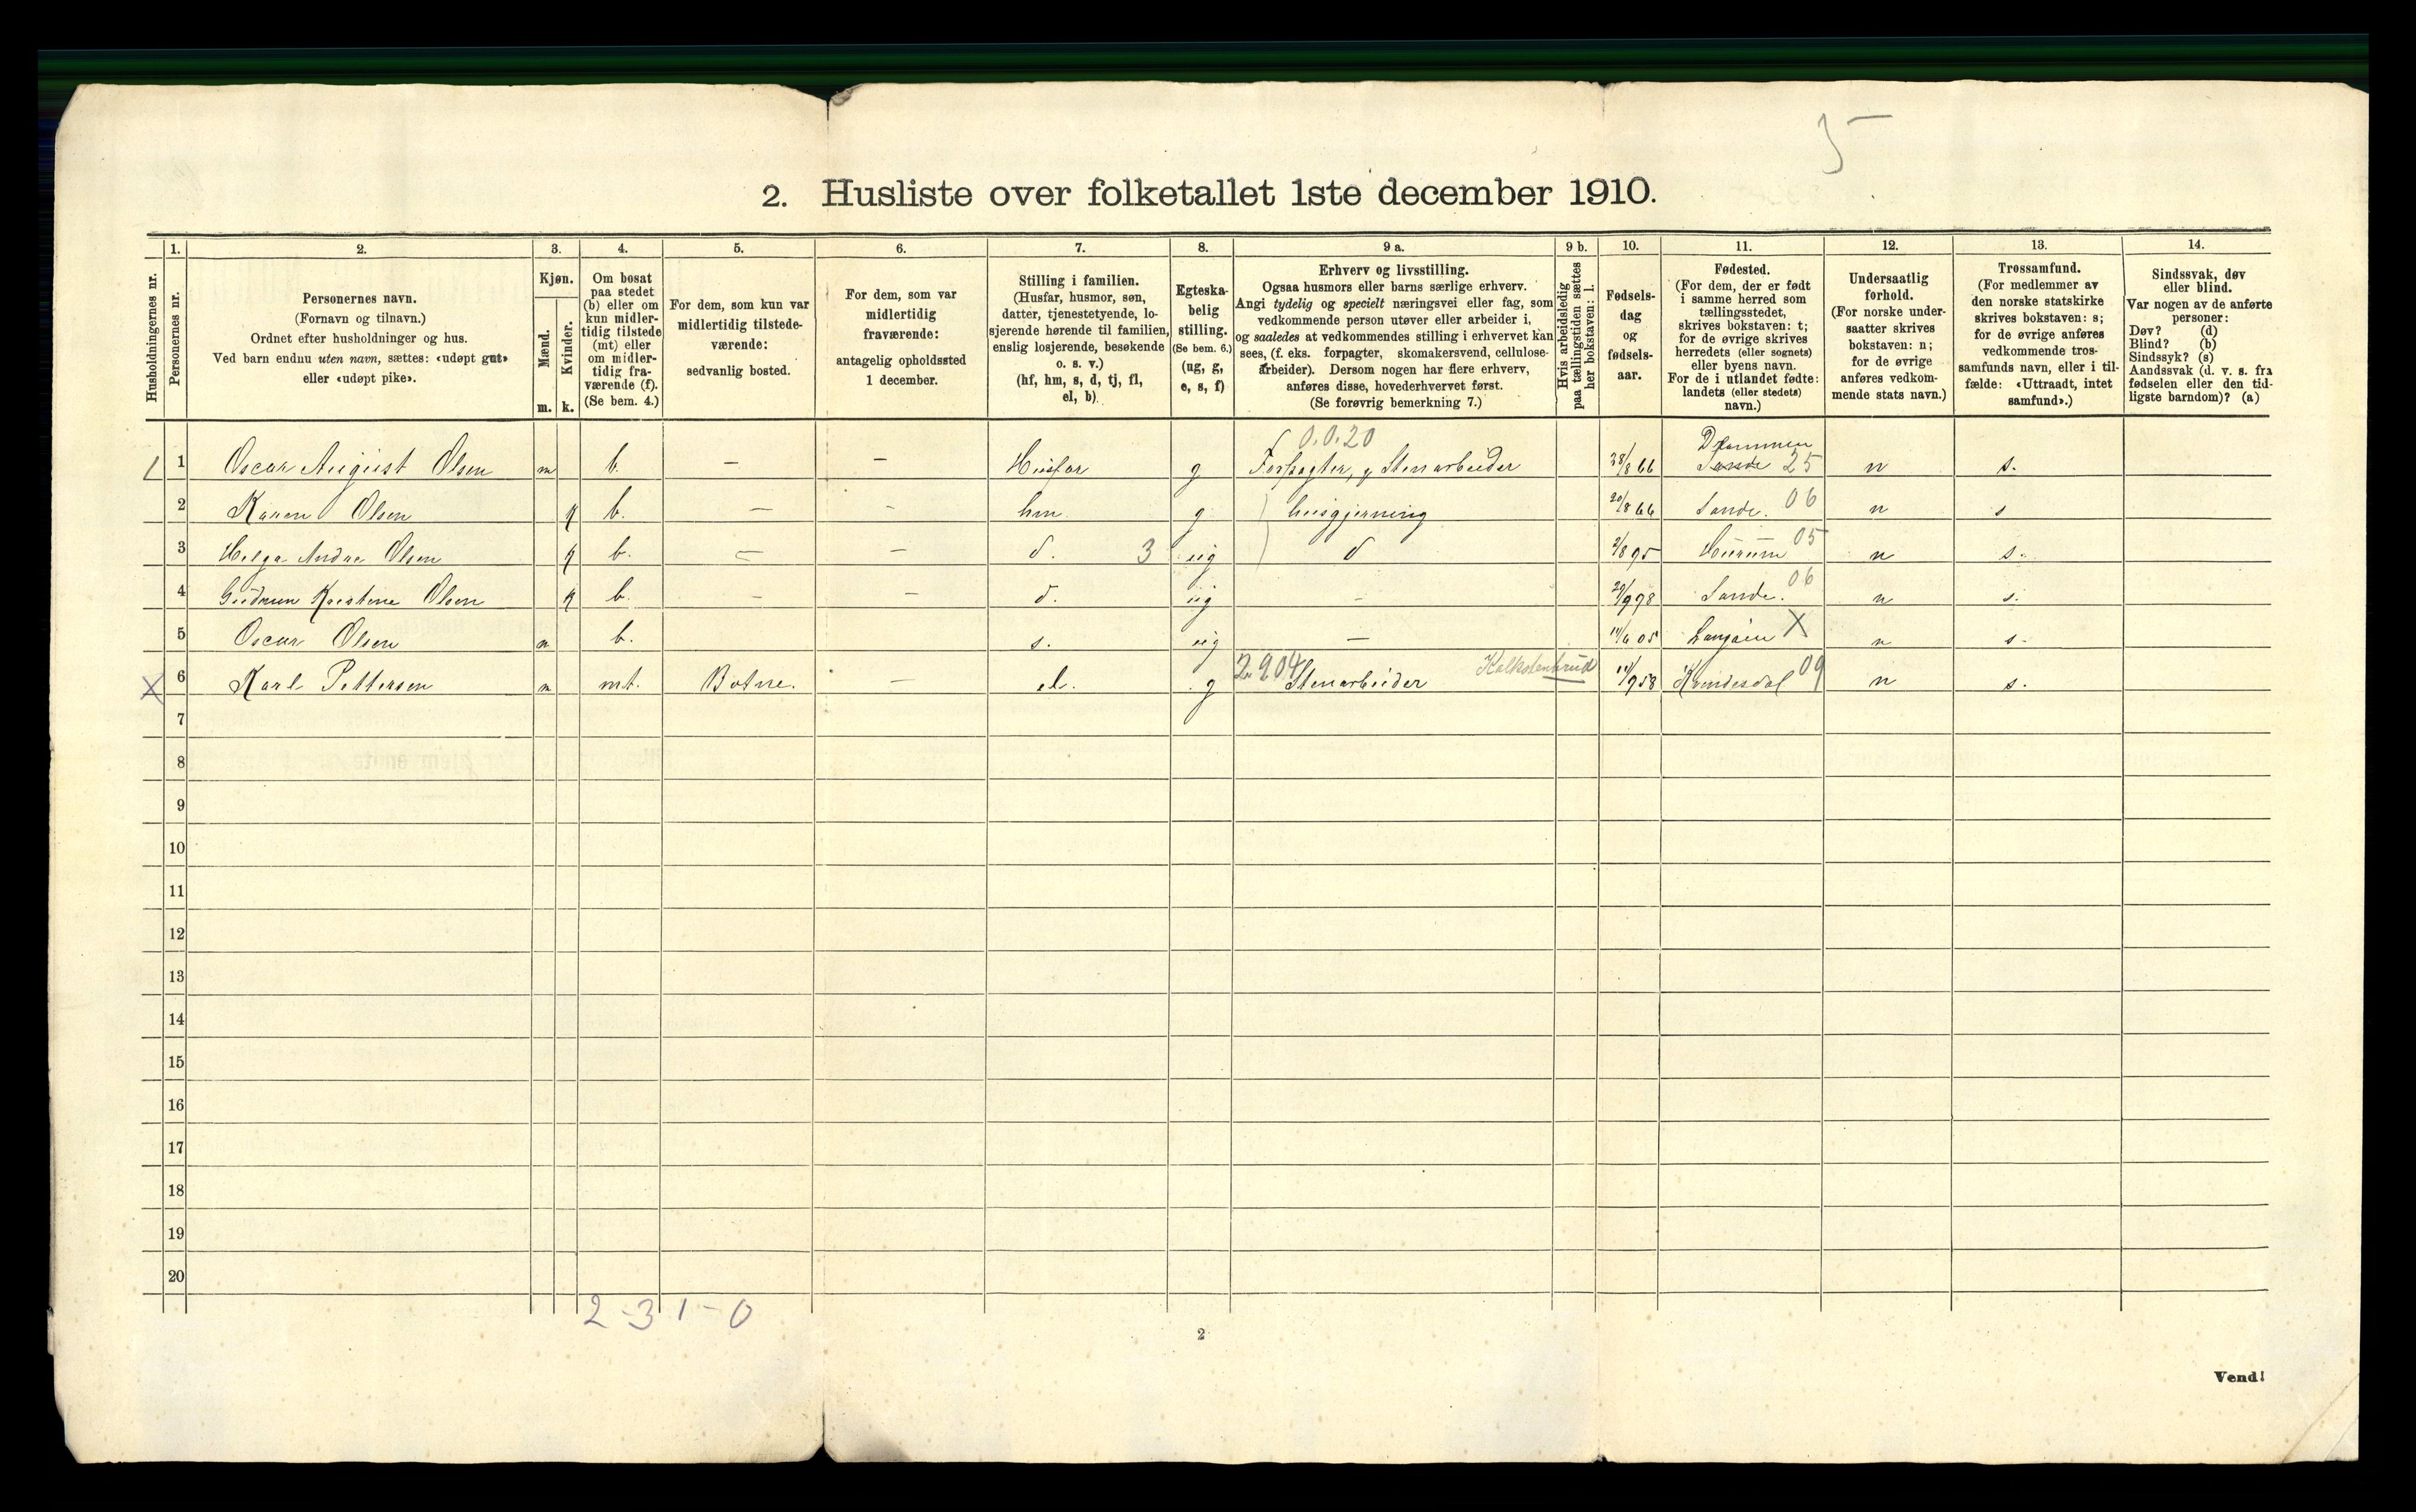 5
2. Husliste over folketallet 1ste december 1910.
Husholdningernes nr.
1.
Personernes nr.
2.
Personernes navn.
(Fornavn og tilnavn.)
Ordnet efter husholdninger og hus.
Ved barn endnu uten navn, sættes: «udøpt gut»
eller «udøpt pike».
3.
Kjøn.
Mænd.
m.
Kvinder.
k.
4.
Om bosat
paa stedet
(b) eller om
kun midler-
tidig tilstede
(mt) eller
om midler-
tidig fra-
værende (f).
(Se bem. 4.)
5.
For dem, som kun var
midlertidig tilstede-
værende:
sedvanlig bosted.
6.
For dem, som var
midlertidig
fraværende:
antagelig opholdssted
1 december.
7.
Stilling i familien.
(Husfar, husmor, søn,
datter, tjenestetyende, lo-
sjerende hørende til familien,
enslig losjerende, besøkende
o. s. v.)
(hf, hm, s, d, tj, fl,
el, b)
8.
Egteska-
belig
stilling.
(Se bem. 6.)
(ug, g,
e, s, f)
9 a.
Erhverv og livsstilling.
Ogsaa husmors eller barns særlige erhverv.
Angi tydelig og specielt næringsvei eller fag, som
vedkommende person utøver eller arbeider i,
og saaledes at vedkommendes stilling i erhvervet kan
sees, (f. eks. forpagter, skomakersvend, cellulose-
arbeider). Dersom nogen har flere erhverv,
anføres disse, hovederhvervet først.
(Se forøvrig bemerkning 7.)
9 b.
Hvis arbeidsledig
paa tællingstiden sættes
her bokstaven: l.
10.
Fødsels-
dag
og
fødsels-
aar.
11.
Fødested.
(For dem, der er født
i samme herred som
tællingsstedet,
skrives bokstaven: t;
for de øvrige skrives
herredets (eller sognets)
eller byens navn.
For de i utlandet fødte:
landets (eller stedets)
navn.)
12.
Undersaatlig
forhold.
(For norske under-
saatter skrives
bokstaven: n;
for de øvrige
anføres vedkom-
mende stats navn.)
13.
Trossamfund.
(For medlemmer av
den norske statskirke
skrives bokstaven: s;
for de øvrige anføres
vedkommende tros-
samfunds navn, eller i til-
fælde: «Uttraadt, intet
samfund».)
14.
Sindssvak, døv
eller blind.
Var nogen av de anførte
personer:
Døv? (d)
Blind? (b)
Sindssyk? (s)
Aandssvak (d. v. s. fra
fødselen eller den tid-
ligste barndom)? (a)
0.0.20 Drammen
1 1 Oscar August Olsen m b. — — Husfar g Forpagter, & Stenarbeider 28/8 66 Sande 25 n s.
2 Karen Olsen k b. — — hm g husgjerning 20/8 66 Sande. 06 n s
3 Helga Andrea Olsen k b. — — d. 3 ug d 2/8 95 Hurum 05 n s.
4 Gudrun Kristine Olsen k b. — — d. ug - 29/9 98 Sande. 06 n s.
5 Oscar Olsen m b. s. ug — 14/6 05 X n s.
X 6 Karl Pettersen m mt. Botne. — el. g 2.904 Stenarbeider Kalkstenbrud 11/9 58 09 n s.
7
8
9
10
11
12
13
14
15
16
17
18
19
20
2-3 1-0
2
Vend!